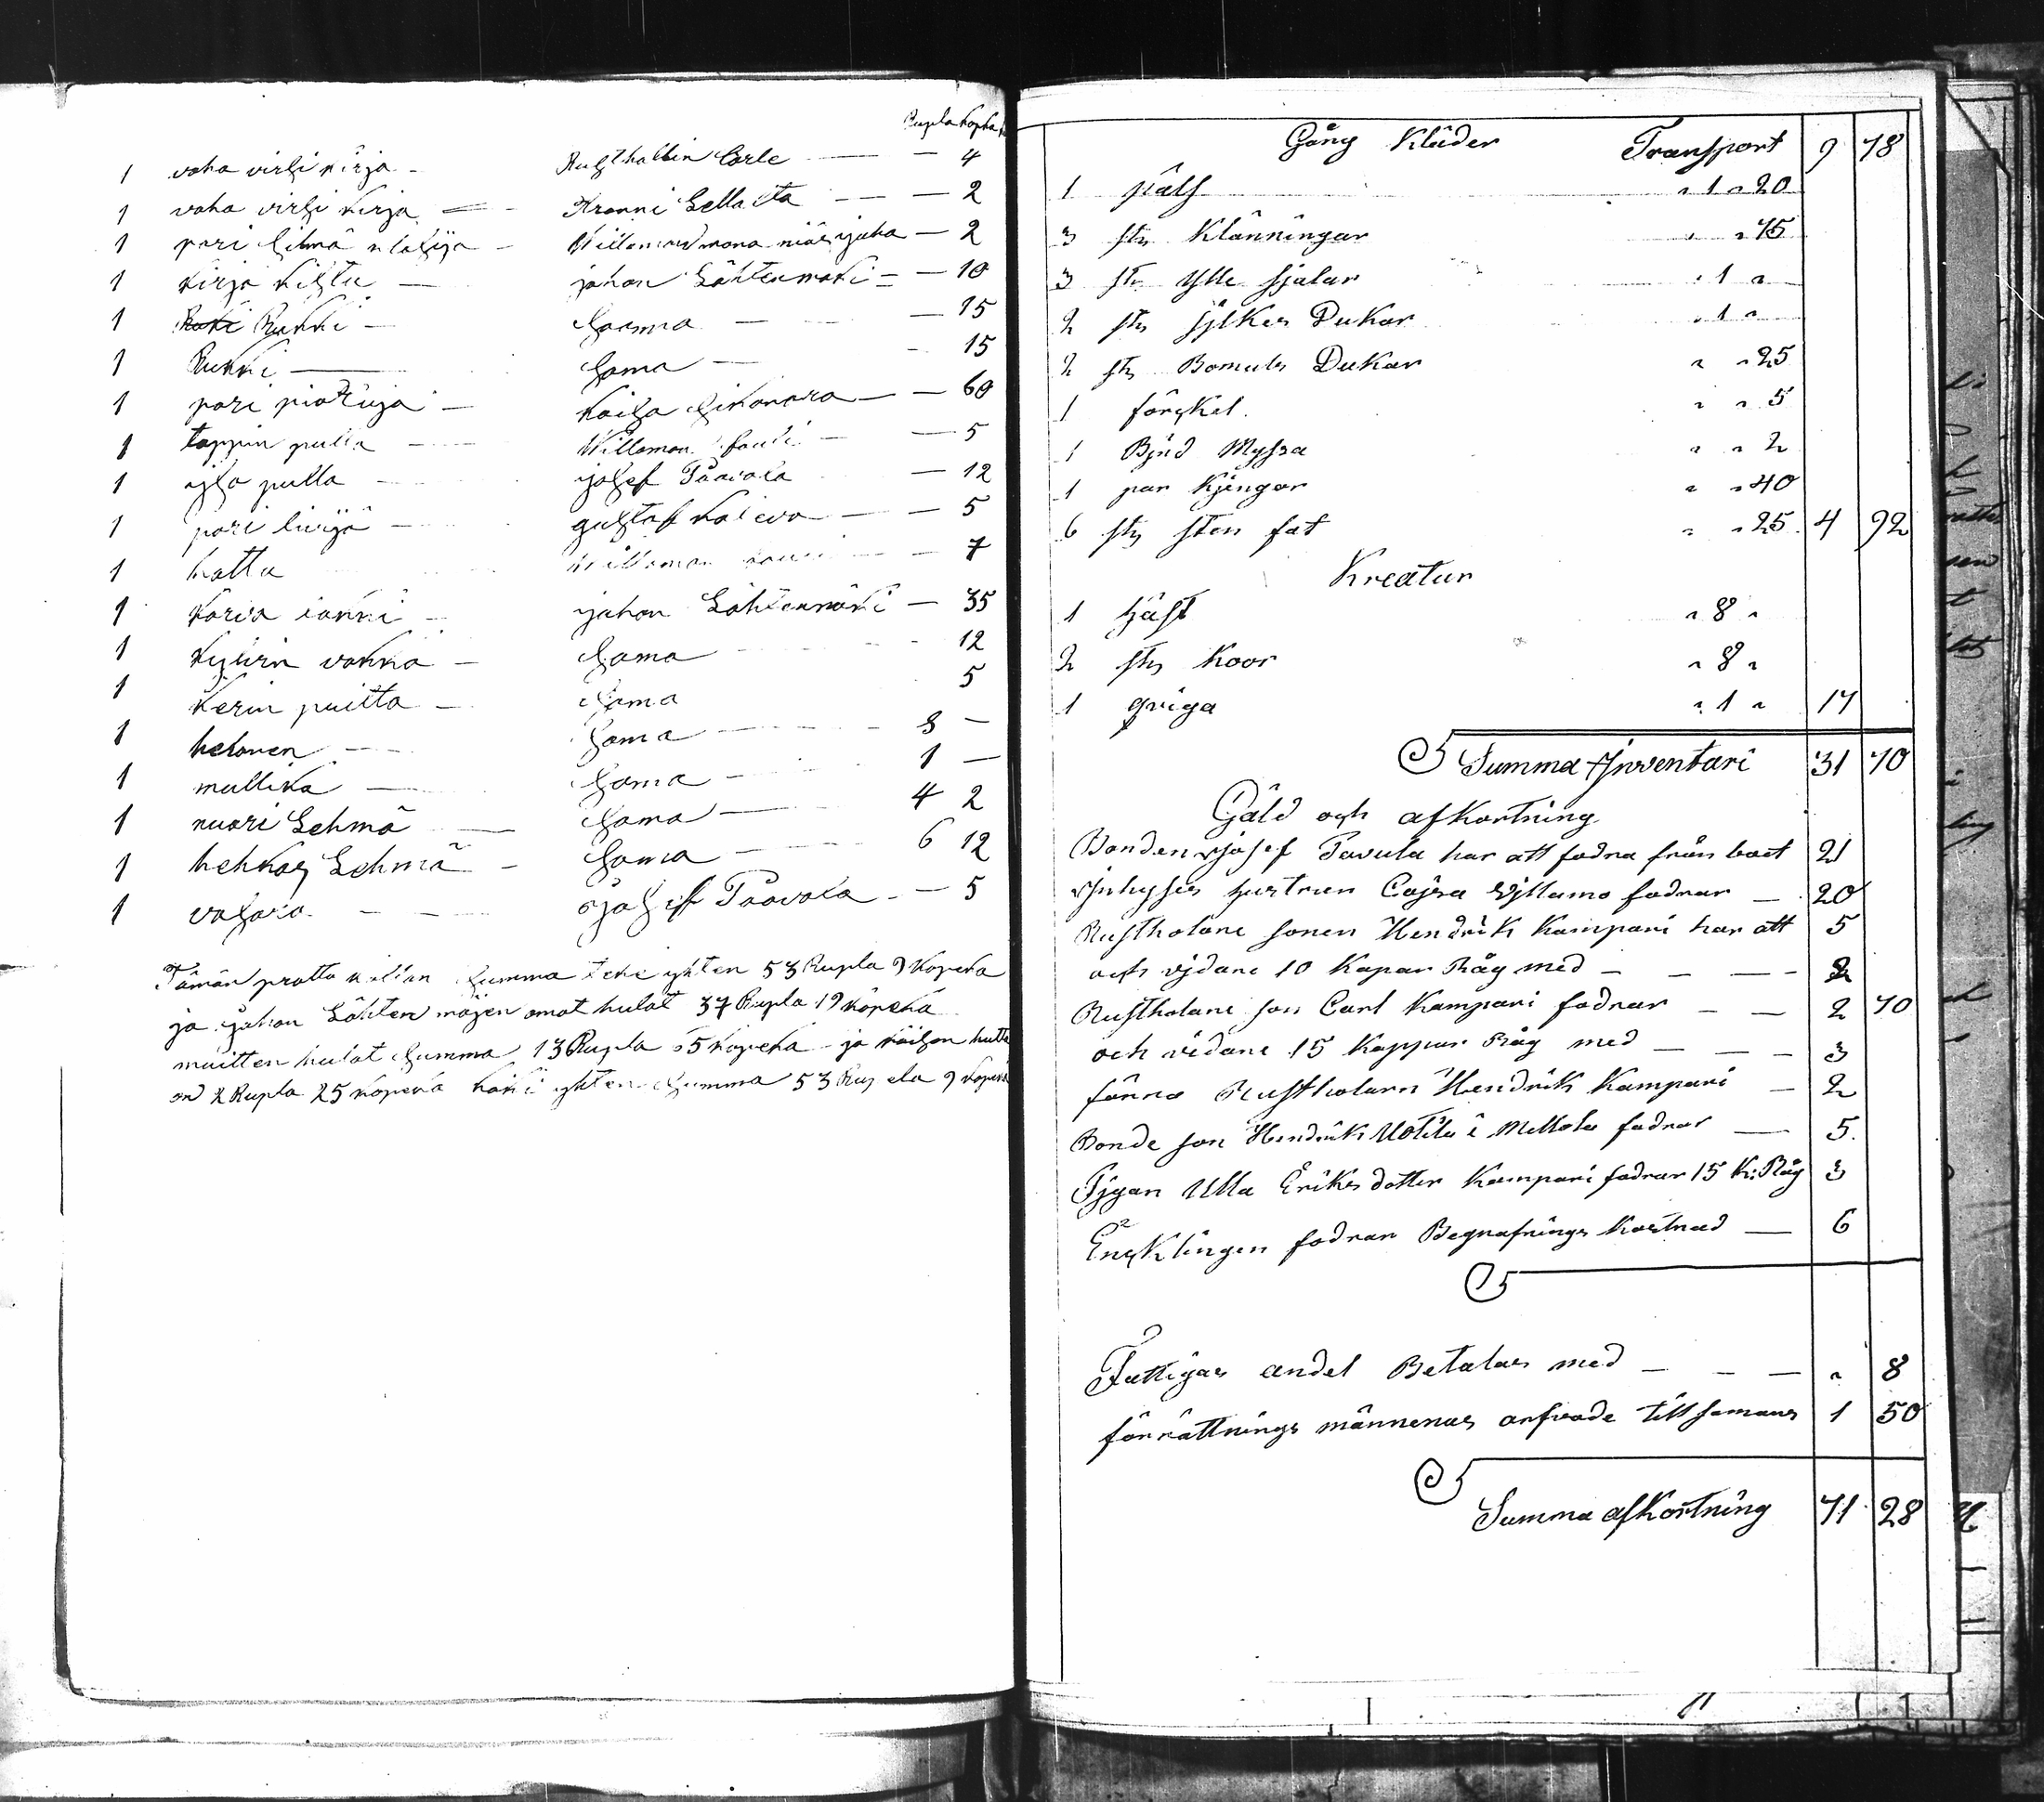 Rupla kopka
1 vaha virsi kirja - Rusthallin Carle — 4
1 vaha virsi kirja - Kranni Sella ita — 2
1 pari silmä n lasija - Willamudmana niör ijuha — 2
1 kirja kistu — johan Löhtenmaki — 10
1 Rukki — Saama — 15
1 Rukki — Sama — 15
1 pari - Kaisa — 60
1 tappin pulla — Willaman — 5
1 isla pulla - josef Påavola — 12
1 pari - gustaf Kaleva — 5
1 hattu Willaman — 7
1 johan Löhtenmäki — 35
1 vakka — Sama 12
1 Kerin puitta — Sama 5
1 hevonen — Sama 8 —
1 mullika — Sama 1 —
1 nuori Lehmä — Sama — 4 2
1 Lehmä - Sama 6 12
1 vasara — josef Påavola — 5
Tämän Summa teke ykten 53 Rupla 9 kopeka
ja johan Löhten mäjen omat hulat 37 Rupla 19 kopeka
muitten hulat Summa 13 Rupla 65 kopeka ja Kaisan hutta
on 2 Rupla 25 kopeka kaiki ykten Summa 53 Rupela 9 kopeka
Gång Kläder Transport 9 78
1 päls " 1 " 20
3 sty Klänningar " " 75
3 sty Ylle sjalar " 1 "
2 sty Sjlkes Dukar " 1 "
2 sty Bomuls Dukar " " 25
1 förskel " " 5
1 Bjnd Myssa " " 2
1 par Kjengor " " 40
6 sty sten fat " " 25 4 92
Kreatur
1 häst " 8 "
2 sty Koor " 8 "
1 qviga " 1 " 17
Summa Inventari 31 70
Gäld och afkortning
Bonden Josef Pavula har att fodra från boet 21
Inhyses hustrun Cajsa fodrar — 20
Rustholare sonen Hendrik Kampari har att 5
och vjdare 10 Kapar Råg med — — — 2
Rustholare son Carl Kampari fodrar — — 2 70
och vidare 15 Kappar Råg med — — — 3
förra Rustholarn Hendrik Kampari — 2
Bonde son Hendrik Uotila i Mellola fodrar — 5
Pjgan Ulla Eriks dotter Kampari fodrar 15 K: Råg 3
Ensklingen fodrar Begrafnings Kostnad — 6
Fattigas andel Betalas med — — — " 8
förrättnings männenas arfvode tillsamans 1 50
Summa afkortning 71 28